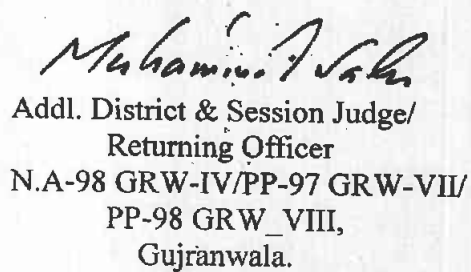 Addl. District & Session Judge/
Returning Officer
N.A-98 GRW-IV/PP-97 GRW-VII/
PP-98 GRW_VIII,
Gujranwala.